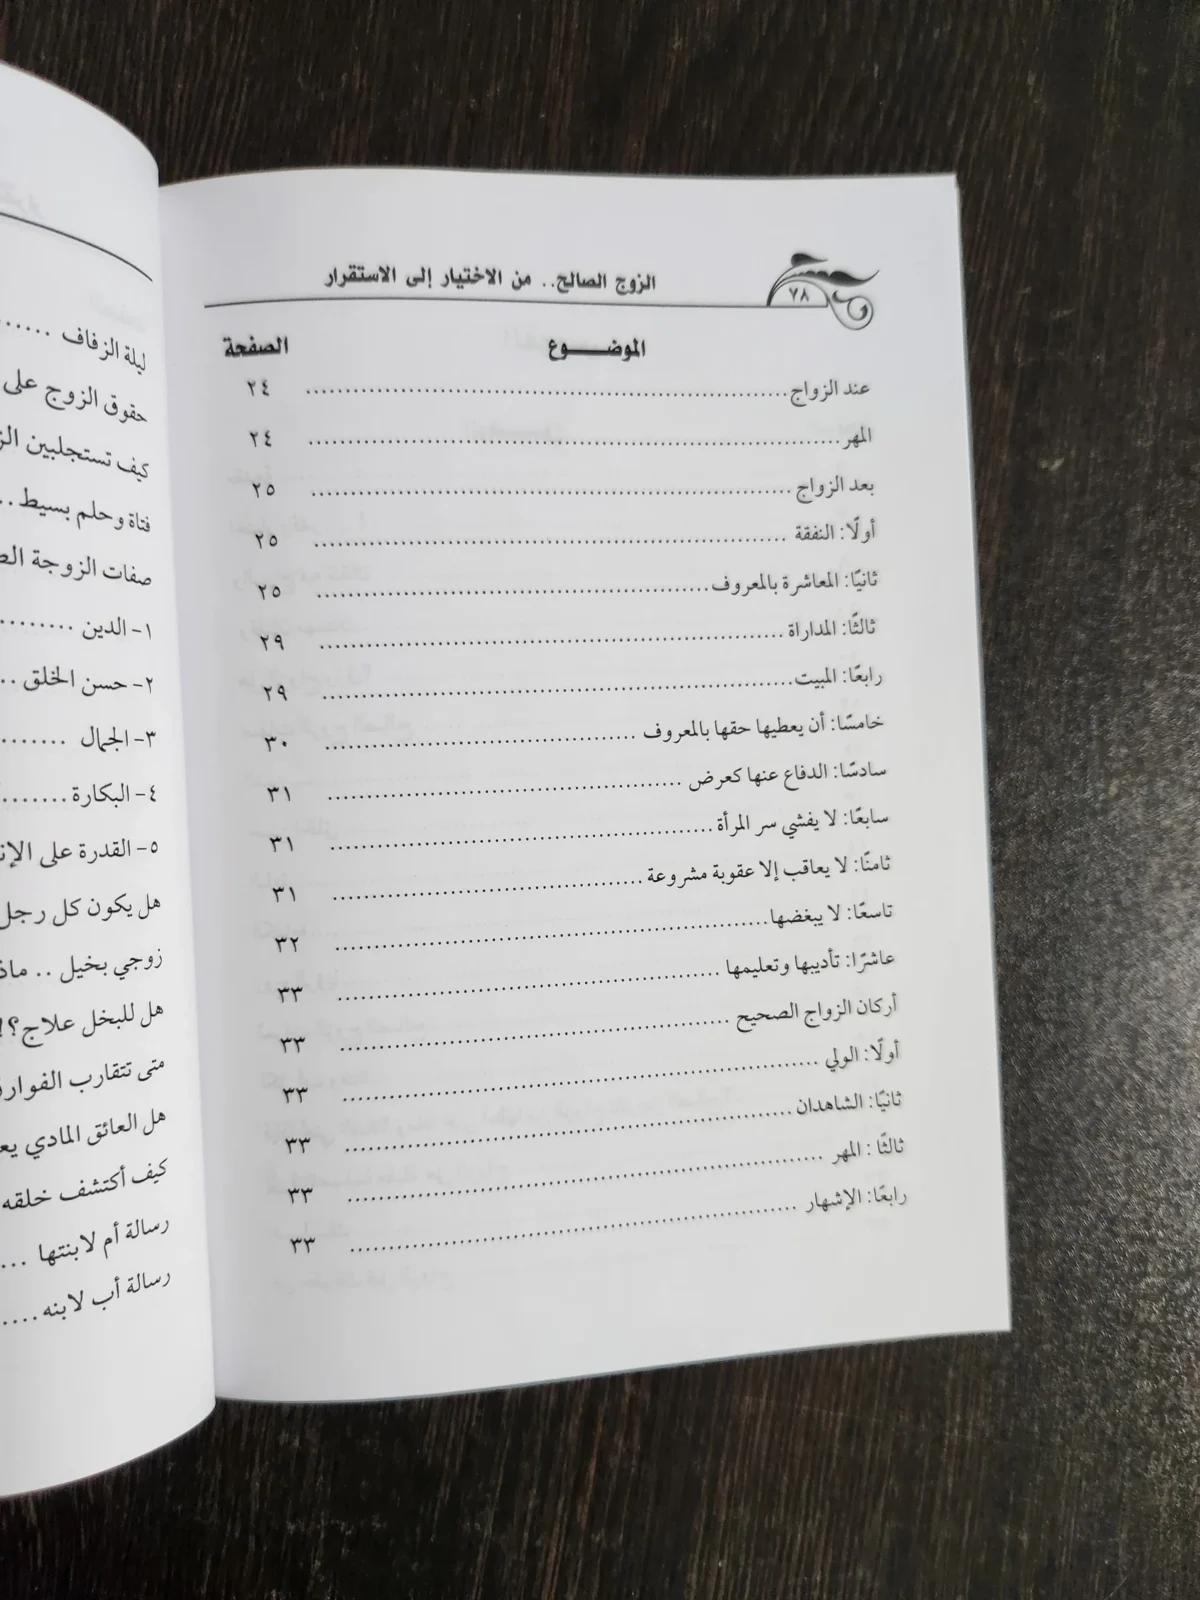 الزوج الصالح.. من الاختيار إلى الاستقرار
٧٨
الموضـــوع الصفحة
عند الزواج ................................ ٢٤
المهر ................................ ٢٤
بعد الزواج ................................ ٢٥
أولًا: النفقة ................................ ٢٥
ثانيًا: المعاشرة بالمعروف ................................ ٢٥
ثالثًا: المداراة ................................ ٢٩
رابعًا: المبيت ................................ ٢٩
خامسًا: أن يعطيها حقها بالمعروف ................................ ٣٠
سادسًا: الدفاع عنها كعرض ................................ ٣١
سابعًا: لا يفشي سر المرأة ................................ ٣١
ثامنًا: لا يعاقب إلا عقوبة مشروعة ................................ ٣١
تاسعًا: لا يبغضها ................................ ٣٢
عاشرًا: تأديبها وتعليمها ................................ ٣٣
أركان الزواج الصحيح ................................ ٣٣
أولًا: الولي ................................ ٣٣
ثانيًا: الشاهدان ................................ ٣٣
ثالثًا: المهر ................................ ٣٣
رابعًا: الإشهار ................................ ٣٣
ليلة الزفاف ......
حقوق الزوج على
كيف تستجلبين
فتاة وحلم بسيط ..
صفات الزوجة
١- الدين ........
٢- حسن الخلق ..
٣- الجمال .......
٤- البكارة ........
٥- القدرة على
هل يكون كل رجل
زوجي بخيل ..
هل للبخل علاج؟!
متى تتقارب
هل العائق المادي
كيف أكتشف خلقه
رسالة أم لابنتها ...
رسالة أب لابنه ....